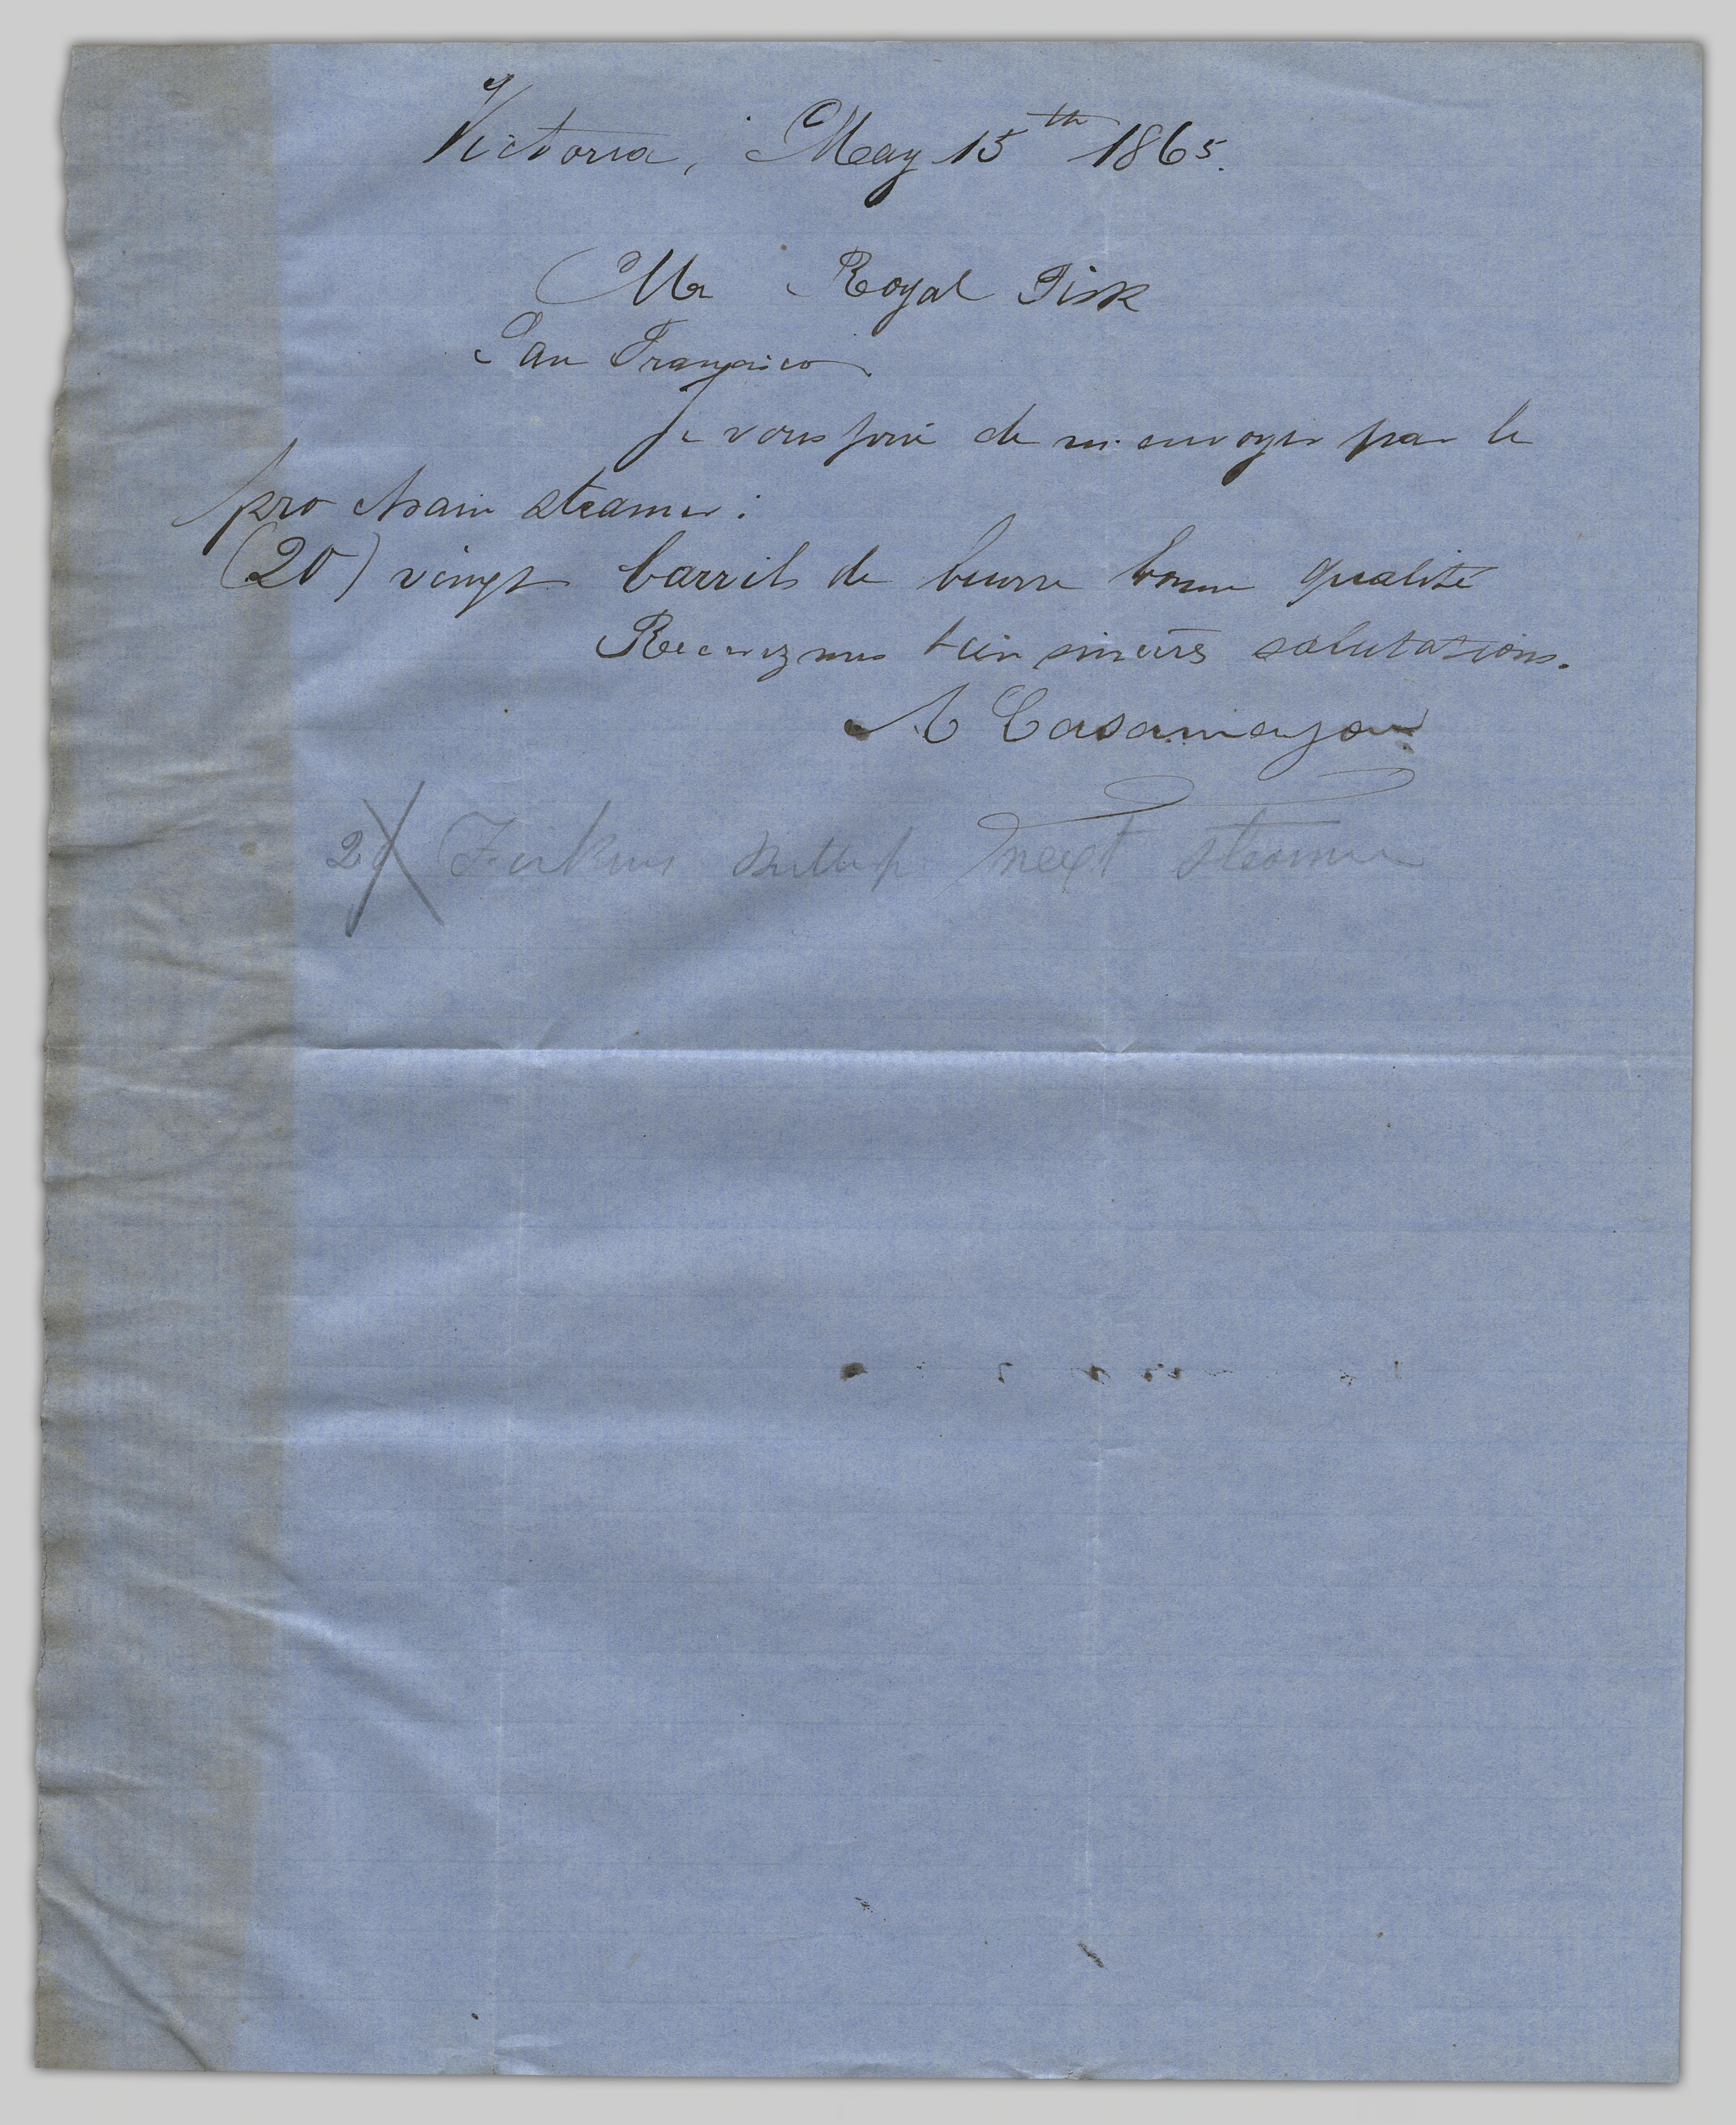 Victoria, May 15th 1865.
Mr Royal Fisk
San Francisco
Je vous prie de m'envoyer par le
prochain steamer:
(20) vingt barrils de beurre bonne qualité
Recevez mes bien sincères salutations.
A Casamayou
20 Firkins Butter p next steamer